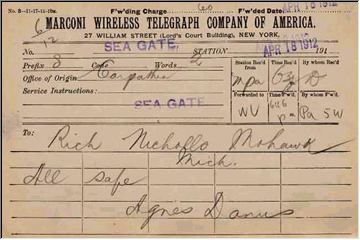 No. 8—11-17-11-10M. F'w'ding Charge 60 F'w'ded Date APR 18 1912
MARCONI WIRELESS TELEGRAPH COMPANY OF AMERICA.
27 WILLIAM STREET (Lord's Court Building), NEW YORK.
No. SEA GATE, STATION APR 18 1912 191
Prefix Code Words 2 Station Rec'd from Time Rec'd By whom Rec'd
Office of Origin Carpathia
Service Instructions: Forwarded to Time F'w'd. By whom F'w'd
SEA GATE
To:
Rich Nicholls Mohawk
Mich.
All safe
Agnes Davis